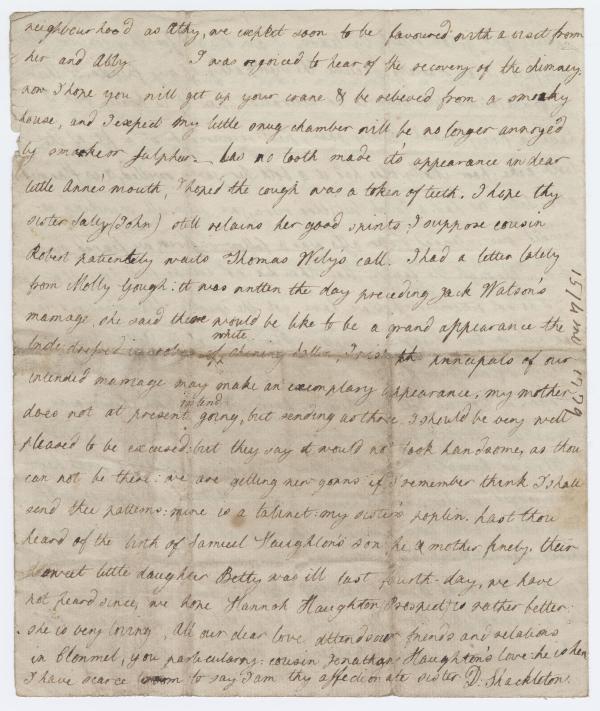 neighbourhood as Athy, we expect soon to be favoured with a visit from
her and Abby I was rejoiced to hear of the recovery of the chimney.
now I hope you will get up your crane & be relieved from a smoaky
house, and I expect my little snug chamber will be no longer annoyed
by smoake or sulphur – has no tooth made it's appearance in dear
little Anne's mouth, I hoped the cough was a token of teeth. I hope thy
sister Sally (John) still retains her good spirits: I suppose cousin
Robert patiently waits Thomas Wily's call. I had a letter lately
from Molly Gough: it was written the day preceding Jack Watson's
marriage, she said there would be like to be a grand appearance the
white
bride dressed in a robe of shining I principals of our
intended marriage may make an exemplary appearance, my mother
intend
does not at present going, but sending as those I should be very well
pleased to be excused: but they say it would not look handsome, as thou
can not be there: we are getting new gowns if I remember think I shall
send thee patterns: mine is a tabinet: my sister's poplin. hast thou
heard of the birth of Samuel Haughton's son he & mother finely, their
sweet little daughter Betty was ill last fourth-day, we have
not heard since, we hope Hannah Haughton (Prospect) is rather better:
she is very loving, All our dear love attends our friends and relations
in Clonmel, you particularly: cousin Jonathan Haughton's love: he is here
I have scarce room to say I am thy affectionate sister D. Shackleton.
15/4 mo 1779